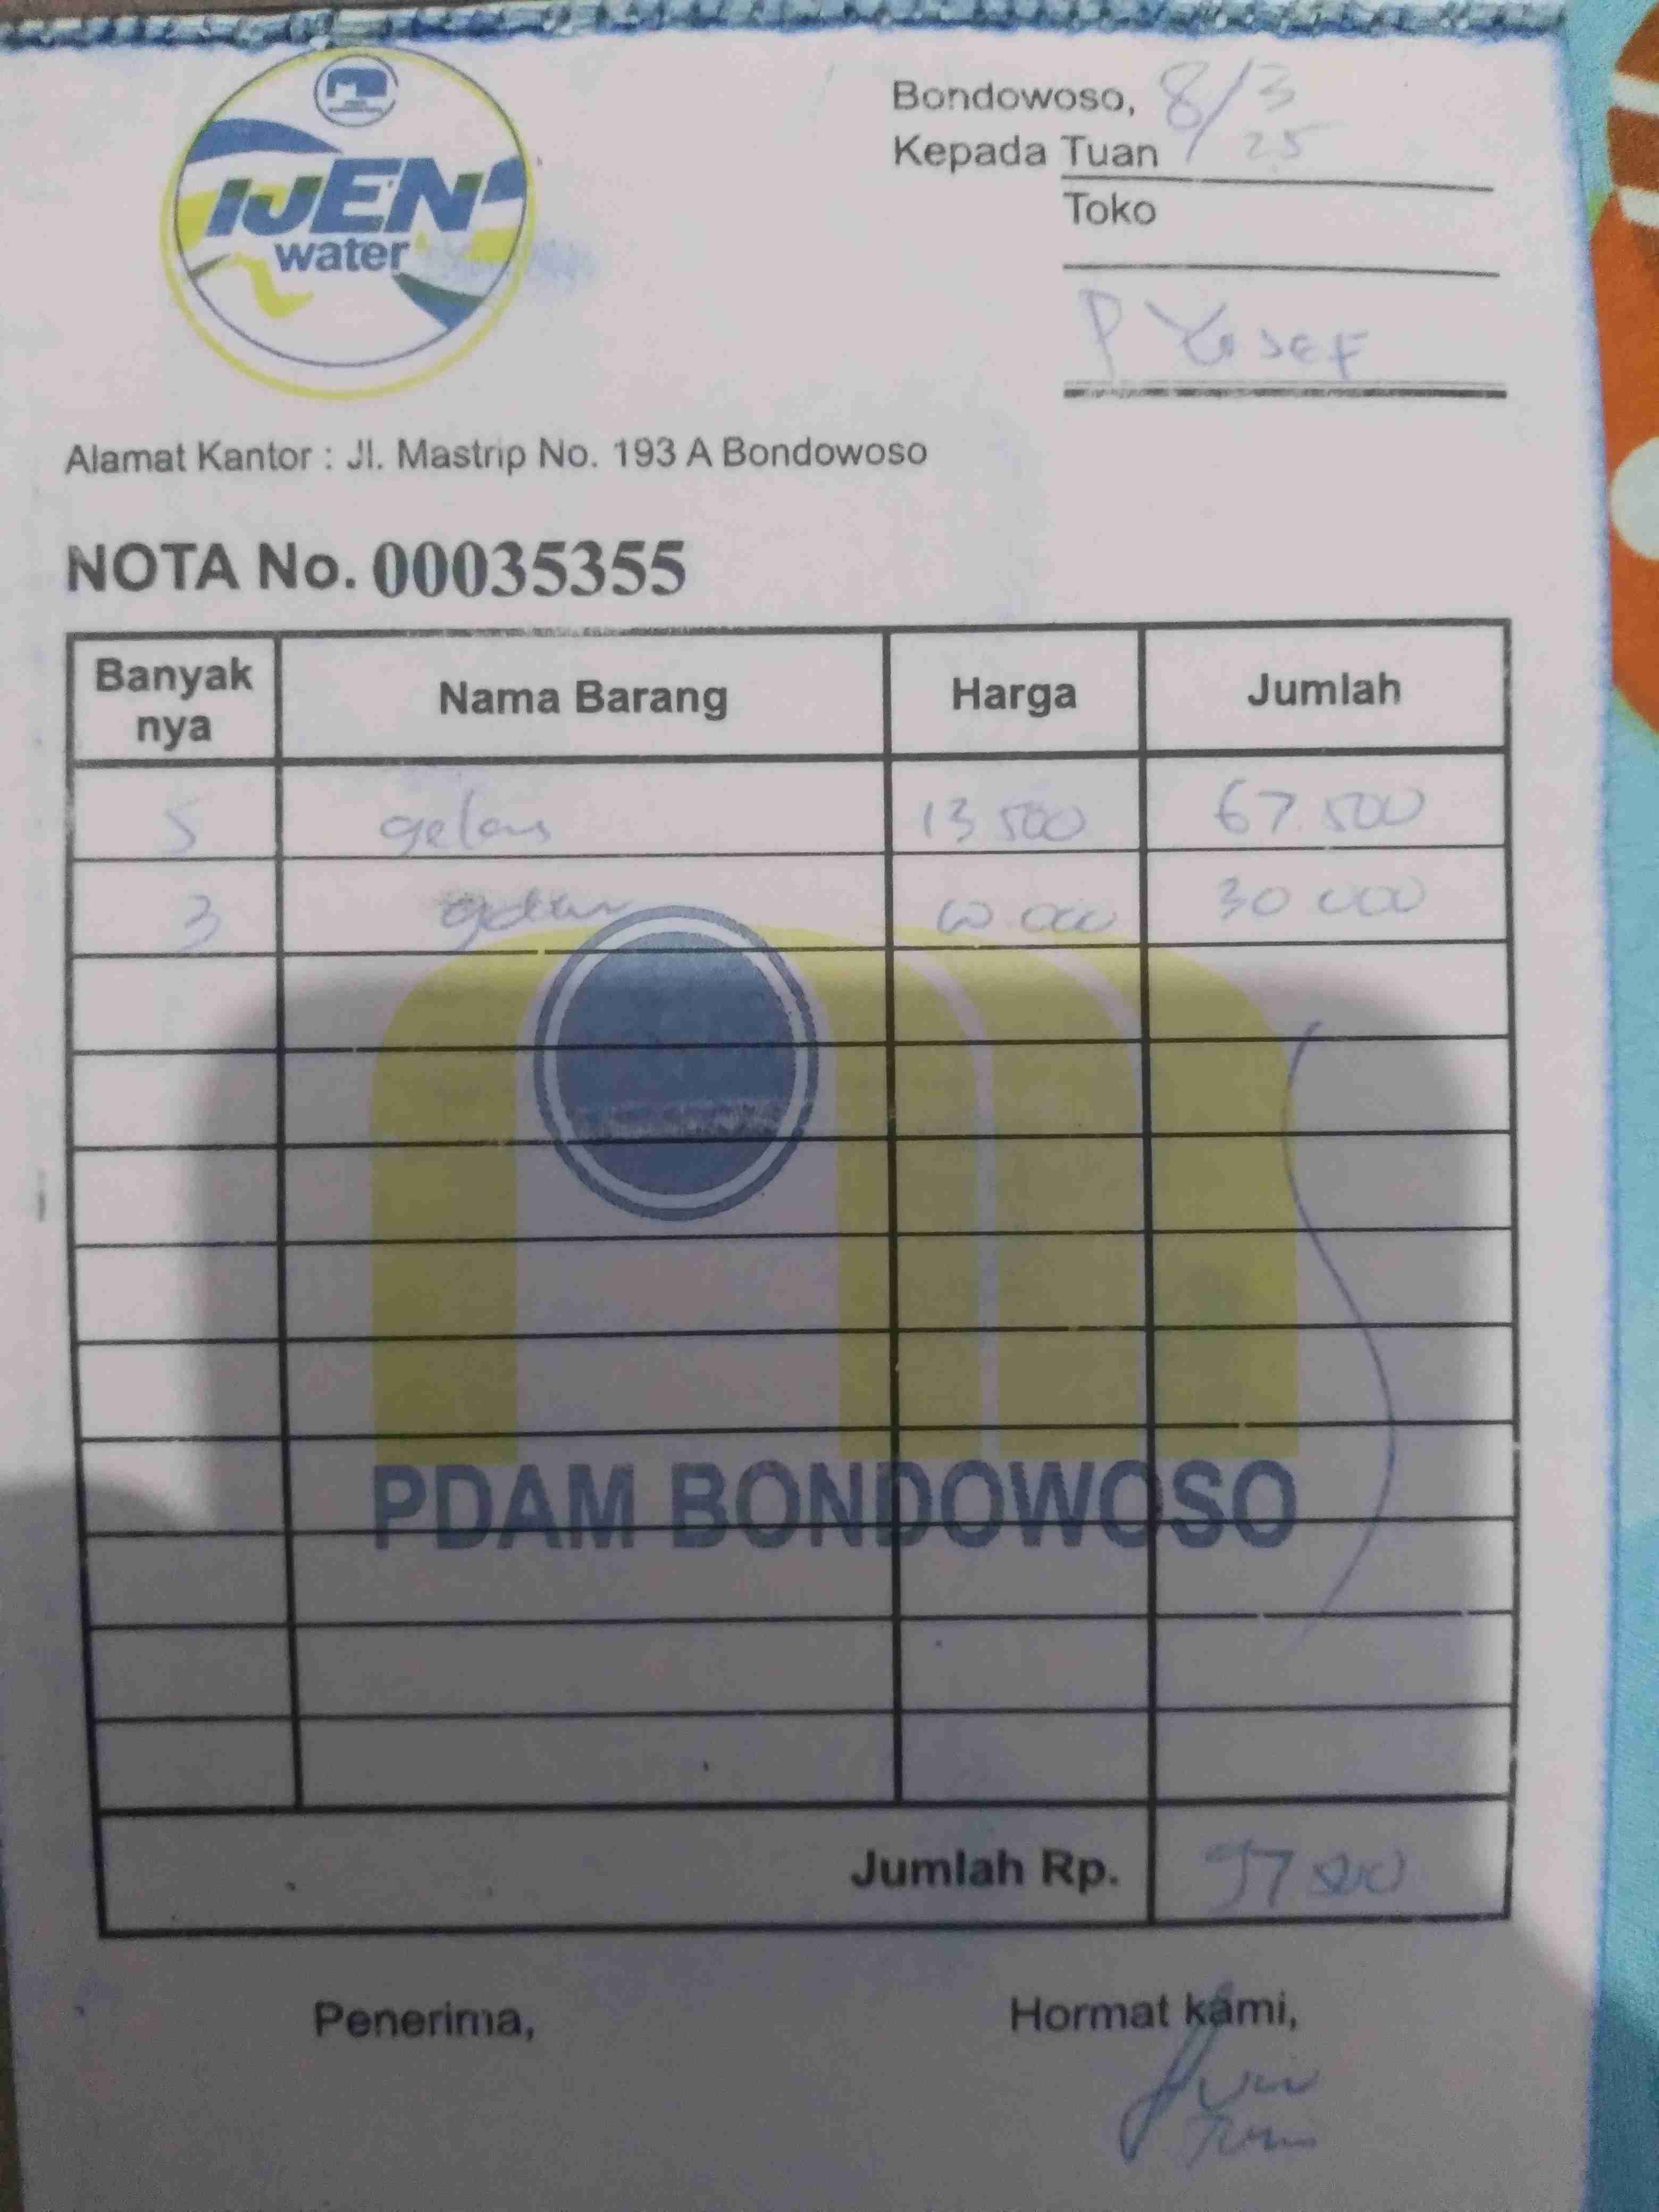 IJEN
water
Bondowoso, 8/3 25
Kepada Tuan
Toko
P Yosef
Alamat Kantor : Jl. Mastrip No. 193 A Bondowoso
NOTA No. 00035355
Banyak nya Nama Barang Harga Jumlah
5 gelas 13 500 67.500
3 10.000 30 000
PDAM BONDOWOSO
Jumlah Rp. 97 500
Penerima, Hormat kami,